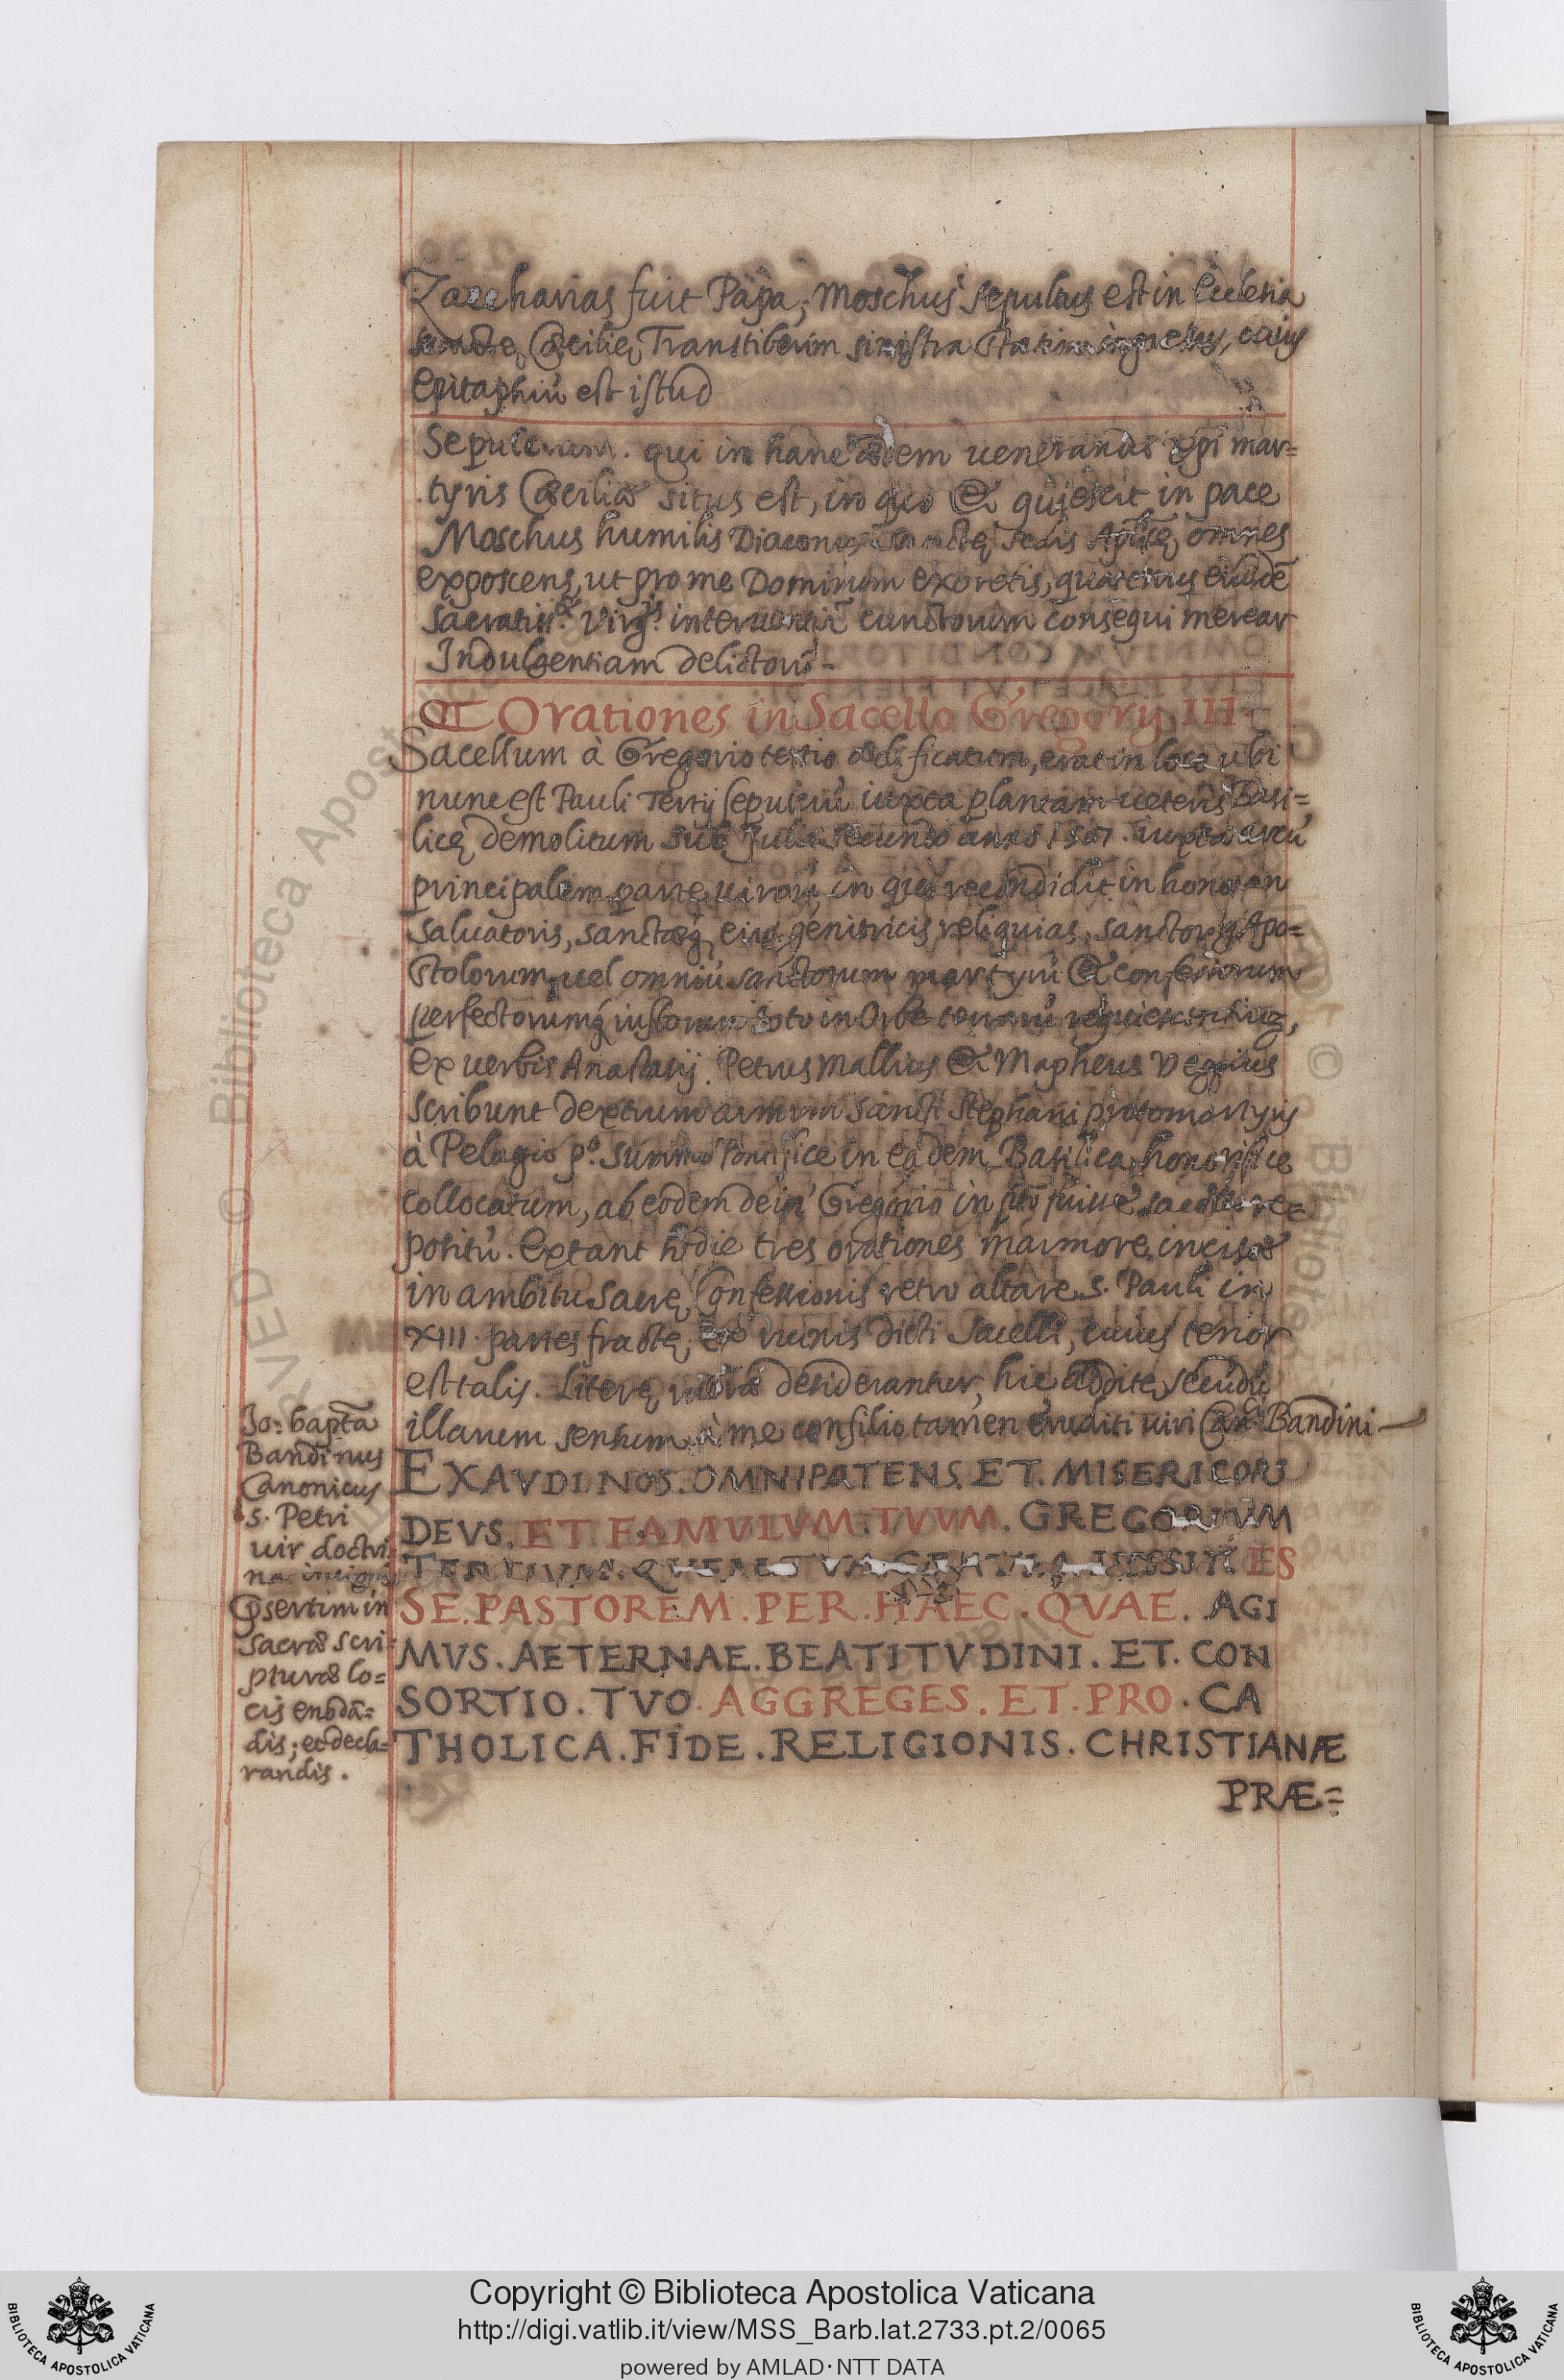 Zaccharias fuit Papa; Moschus sepultus est in Ecclesia
sanctę Cæcilię Transtiberim sinistra statim ingressus, cuius
Epitaphiū est istud
Sepulcrum. qui in hanc ædem uenerandæ xp̄i mar=
tyris Cæciliæ situs est, in quo & quiescit in pace
Moschus humilis Diaconus sanctę sedis Apl̄icę omnes
exposcens, ut pro me Dominum exoretis, quatenus eiusdē
sacratiss.æ Virg.is cunctorum consequi merear
Indulgentiam delictorū-
Orationes in Sacello Gregorij III
Sacellum à Gregorio tertio ædificatum, erat in loco ubi
nunc est Pauli Tertij sepulcrū iuxta plantam ueteris Basi=
licę demolitum sub Julio secundo anno 1507. iuxta arcū
principalem parte uirorū, in quo recondidit in honorem
saluatoris, sanctæq́ eius genitricis reliquias, sanctorūq́ Apo=
stolorum, uel omniū sanctorum martyrū & confessorum
perfectorumq́ iustorum toto in Orbe terrarū requiescentiū,
ex uerbis Anastasij. Petrus Mallius & Mapheus Vegius
scribunt dextrum armum sancti Stephani protomartyris
à Pelagio p.o summo Pontifice in eadem Basilica honorifice
collocatum, ab eodem dein Gregorio in sacello re=
positū. Extant hodie tres orationes marmore incisæ
in ambitu sacrę Confessionis retro altare s. Pauli in
XIII. partes fractę, ex ruinis dicti Sacelli, cuius tenor
est talis. Literę desiderantur, hic additę secundū
illarum sensum à me consilio tamen eruditi uiri Can.ci Bandini
EXAVDI NOS. OMNIPATENS. ET. MISERICORS
DEVS. ET. FAMVLVM. TVVM. GREGORIVM
TERTIVM. ES
SE. PASTOREM. PER. HAEC. QVAE. AGI
MVS. AETERNAE. BEATITVDINI. ET. CON
SORTIO. TVO. AGGREGES. ET. PRO. CA
THOLICA. FIDE. RELIGIONIS. CHRISTIANÆ
PRÆ=
Jo: bapt̄a
Bandinus
Canonicus
s. Petri
uir doctri=
na insignis
p̄sertim in
sacræ scri=
pturæ lo=
cis enodā=
dis; et decla=
randis.
Copyright © Biblioteca Apostolica Vaticana
http://digi.vatlib.it/view/MSS_Barb.lat.2733.pt.2/0065
powered by AMLAD·NTT DATA
BIBLIOTECA APOSTOLICA VATICANA
BIBLIOTECA APOSTOLICA VATICANA